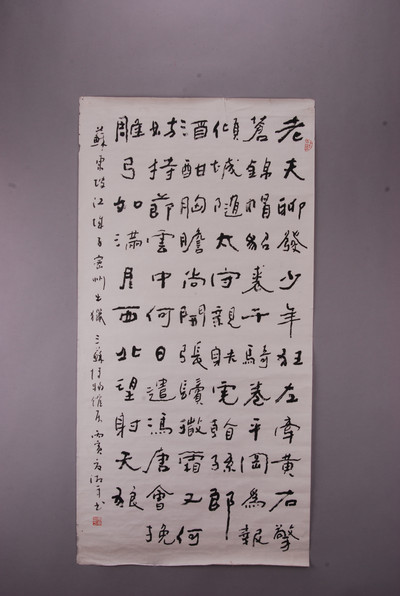 老夫聊發少年狂左牽黃右擎
蒼錦帽貂裘千騎卷平岡為報
傾城隨太守親射虎看孫郎
酒酣胸膽尚開張鬢微霜又何
妨持節雲中何日遣馮唐會挽
雕弓如滿月西北望射天狼
蘇東坡江城子密州出獵 三蘇博物館屬 丙寅 書